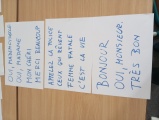 OUI, MADEMOISELLE
OUI, MADAME
MON CHÉRI
MERCI BEAUCOUP
APPELEZ LA POLICE
CEUX QUI RÊVENT
FEMME FATALE
C'EST LA VIE
BONJOUR
OUI, MONSIEUR,
TRÈS BON